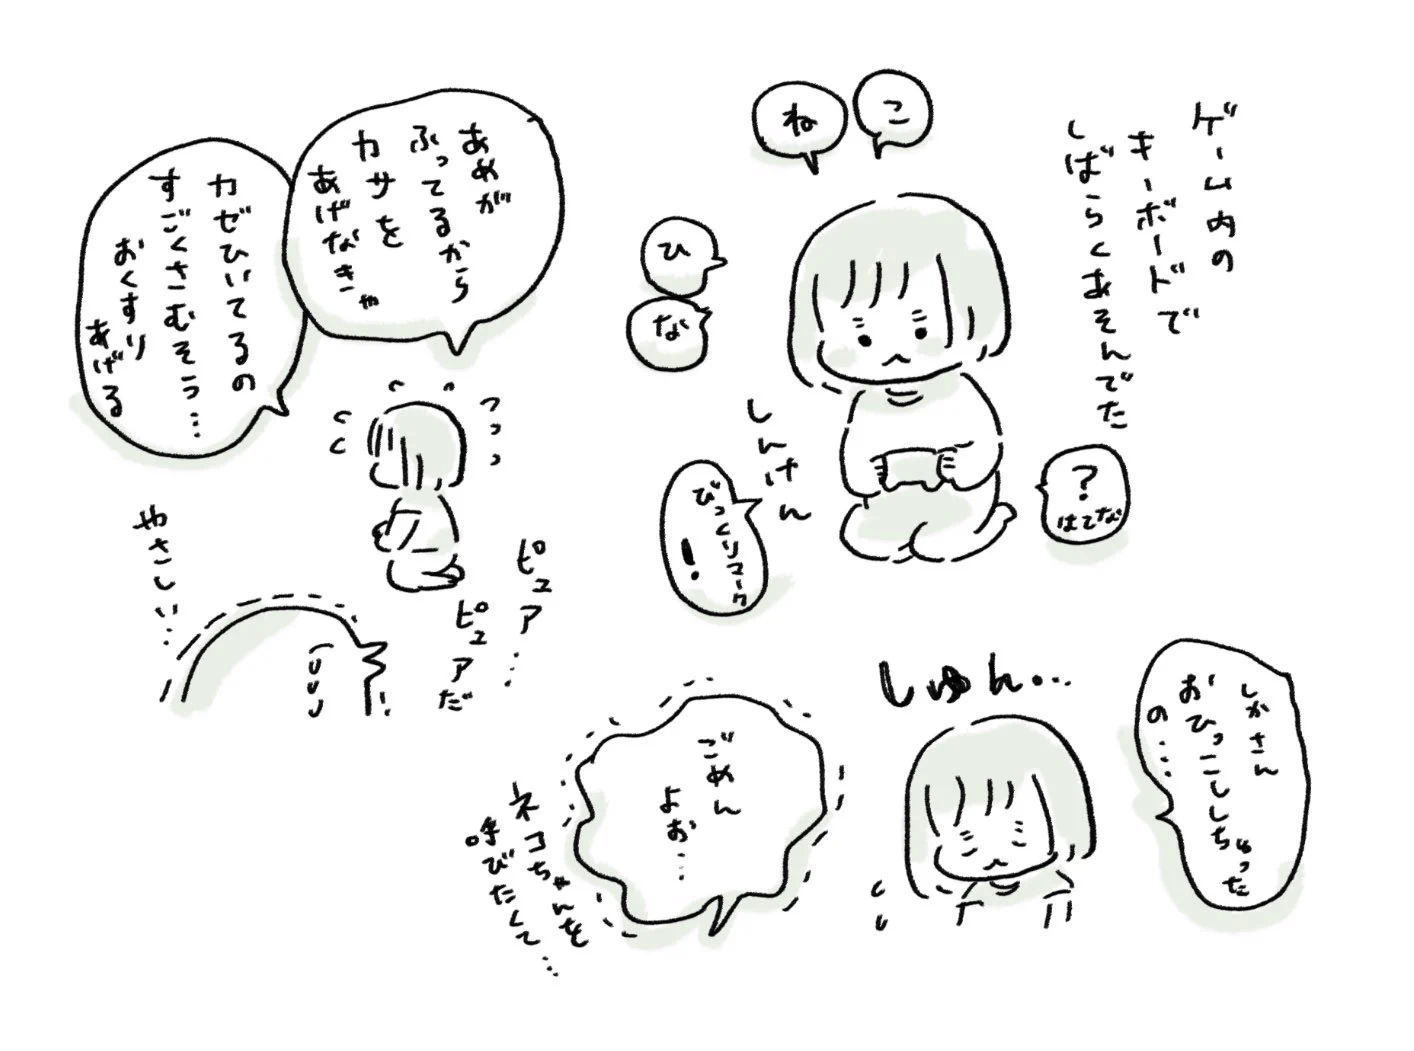 ゲーム内の
キーボードで
しばらくあそんでた
こ
ね
ひ
な
しんけん
?
はてな
びっくりマーク
!
あめが
ふってるから
カサを
あげなきゃ
カゼひいてるの
すごくさむそう…
おくすり
あげる
ピュア…
ピュアだ
やさしい…
しかさん
おひっこししちゃった
の…
しゅん…
ごめん
よお…
ネコちゃんを
呼びたくて…